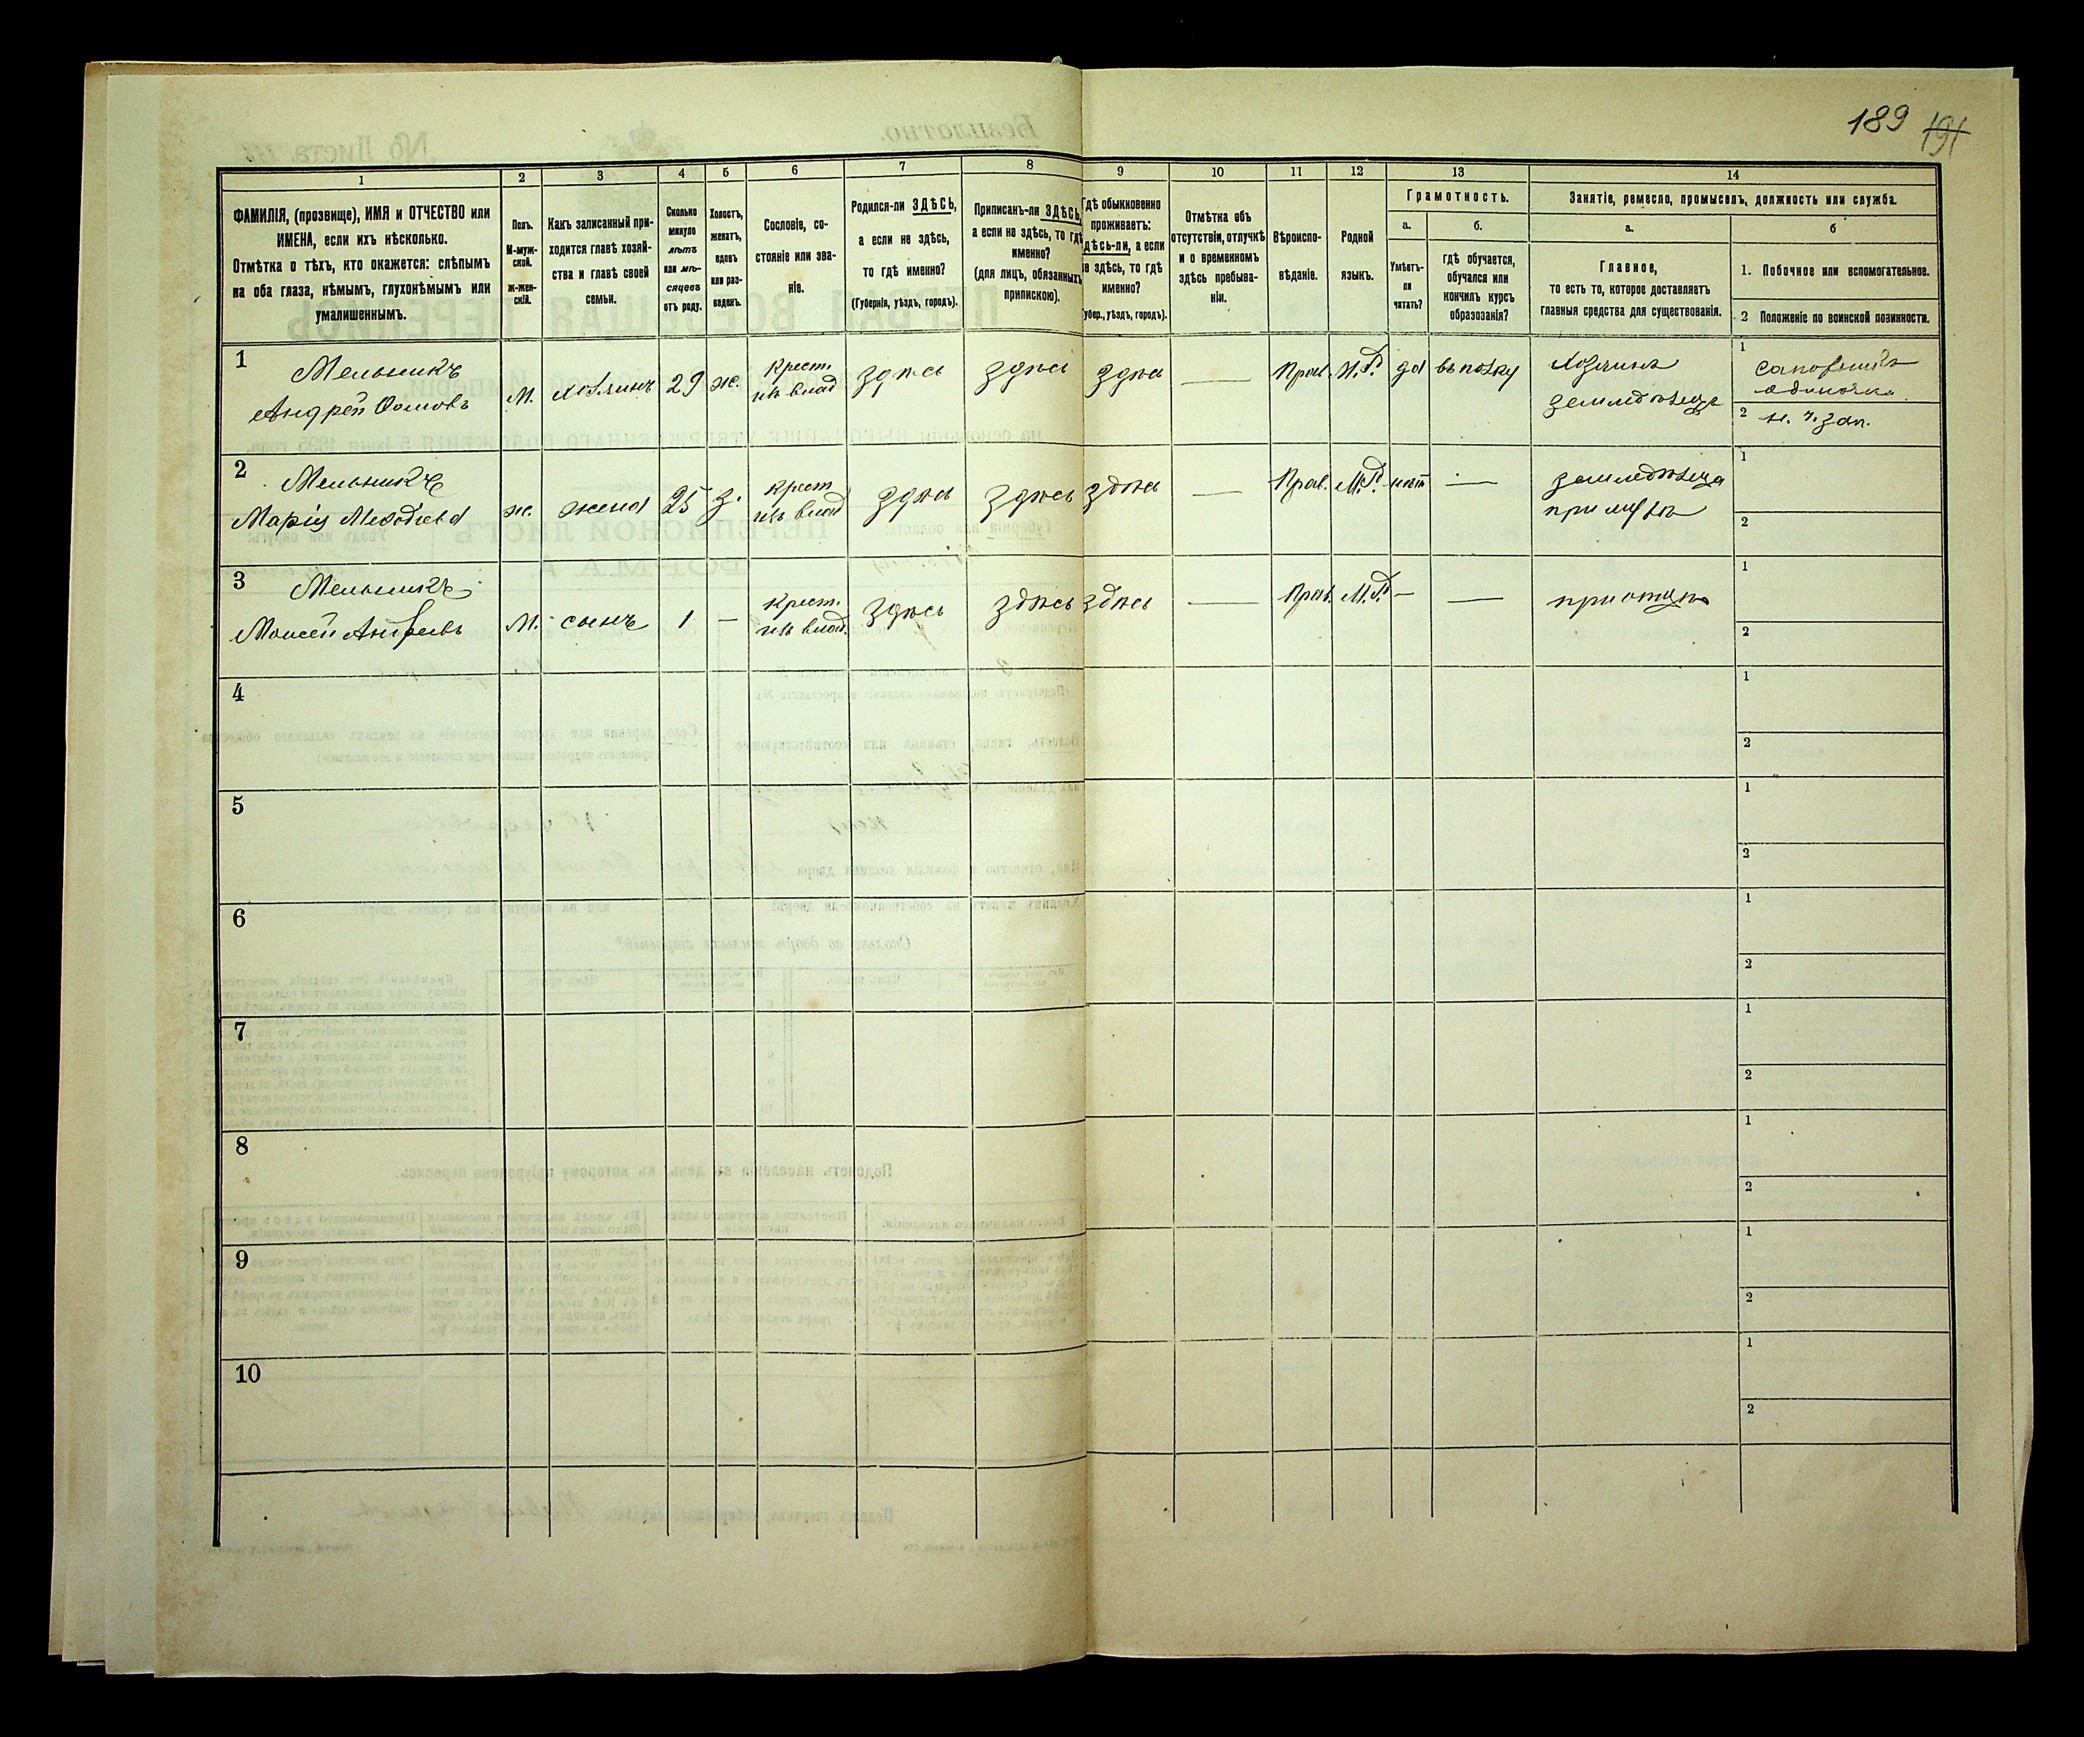 189 191
1
2
3
4
5
6
7
8
9
10
11
12
13
14
ФАМИЛІЯ, (прозвище), ИМЯ и ОТЧЕСТВО или
ИМЕНА, если ихъ нѣсколько.
Отмѣтка о тѣхъ, кто окажется: слѣпымъ
на оба глаза, нѣмымъ, глухонѣмымъ или
умалишеннымъ.
Полъ.
М-муж-
ской.
ж-жен-
скій.
Какъ записанный при-
ходится главѣ хозяй-
ства и главѣ своей
семьи.
Сколько
минуло
лѣтъ
или мѣ-
сяцевъ
отъ роду.
Холостъ,
женатъ,
вдовъ
или раз-
веденъ.
Сословіе, со-
стояніе или зва-
ніе.
Родился-ли ЗДѢСЬ,
а если не здѣсь,
то гдѣ именно?
(Губернія, уѣздъ, городъ).
Приписанъ-ли ЗДѢСЬ,
а если не здѣсь, то гдѣ
именно?
(для лицъ, обязанныхъ
припискою).
Гдѣ обыкновенно
проживаетъ:
здѣсь-ли, а если
не здѣсь, то гдѣ
именно?
(Губер., уѣздъ, городъ).
Отмѣтка объ
отсутствіи, отлучкѣ
и о временномъ
здѣсь пребыва-
ніи.
Вѣроиспо-
вѣданіе.
Родной
языкъ.
Грамотность.
а.
б.
Умѣетъ-
ли
читать?
гдѣ обучается,
обучался или
кончилъ курсъ
образованія?
Занятіе, ремесло, промыселъ, должность или служба.
а.
б
Главное,
то есть то, которое доставляетъ
главныя средства для существованія.
1. Побочное или вспомогательное.
2 Положеніе по воинской повинности.
1
Мельникъ
Андрей Ѳомовъ
М.
хозяинъ
29
ж.
Крест.
изъ влад
здѣсь
здѣсь
здѣсь
—
Прав.
М.Р.
да
въ полку
Хозяинъ
земледѣлецъ
1
сапожникъ
одиночка
2
н. ч. зап.
2
Мельникъ
Марія Меѳодіева
ж.
жена
25
з.
Крест
изъ влад
здѣсь
здѣсь
здѣсь
—
Прав.
М.Р.
нѣт
—
земледѣлица
при мужѣ
1
2
3
Мельникъ
Моисей Андреевъ
М.
сынъ
1
—
Крест.
изъ влад.
здѣсь
здѣсь
здѣсь
—
Прав.
М.Р.
—
—
при отцѣ
1
2
4
1
2
5
1
2
6
1
2
7
1
2
8
1
2
9
1
2
10
1
2